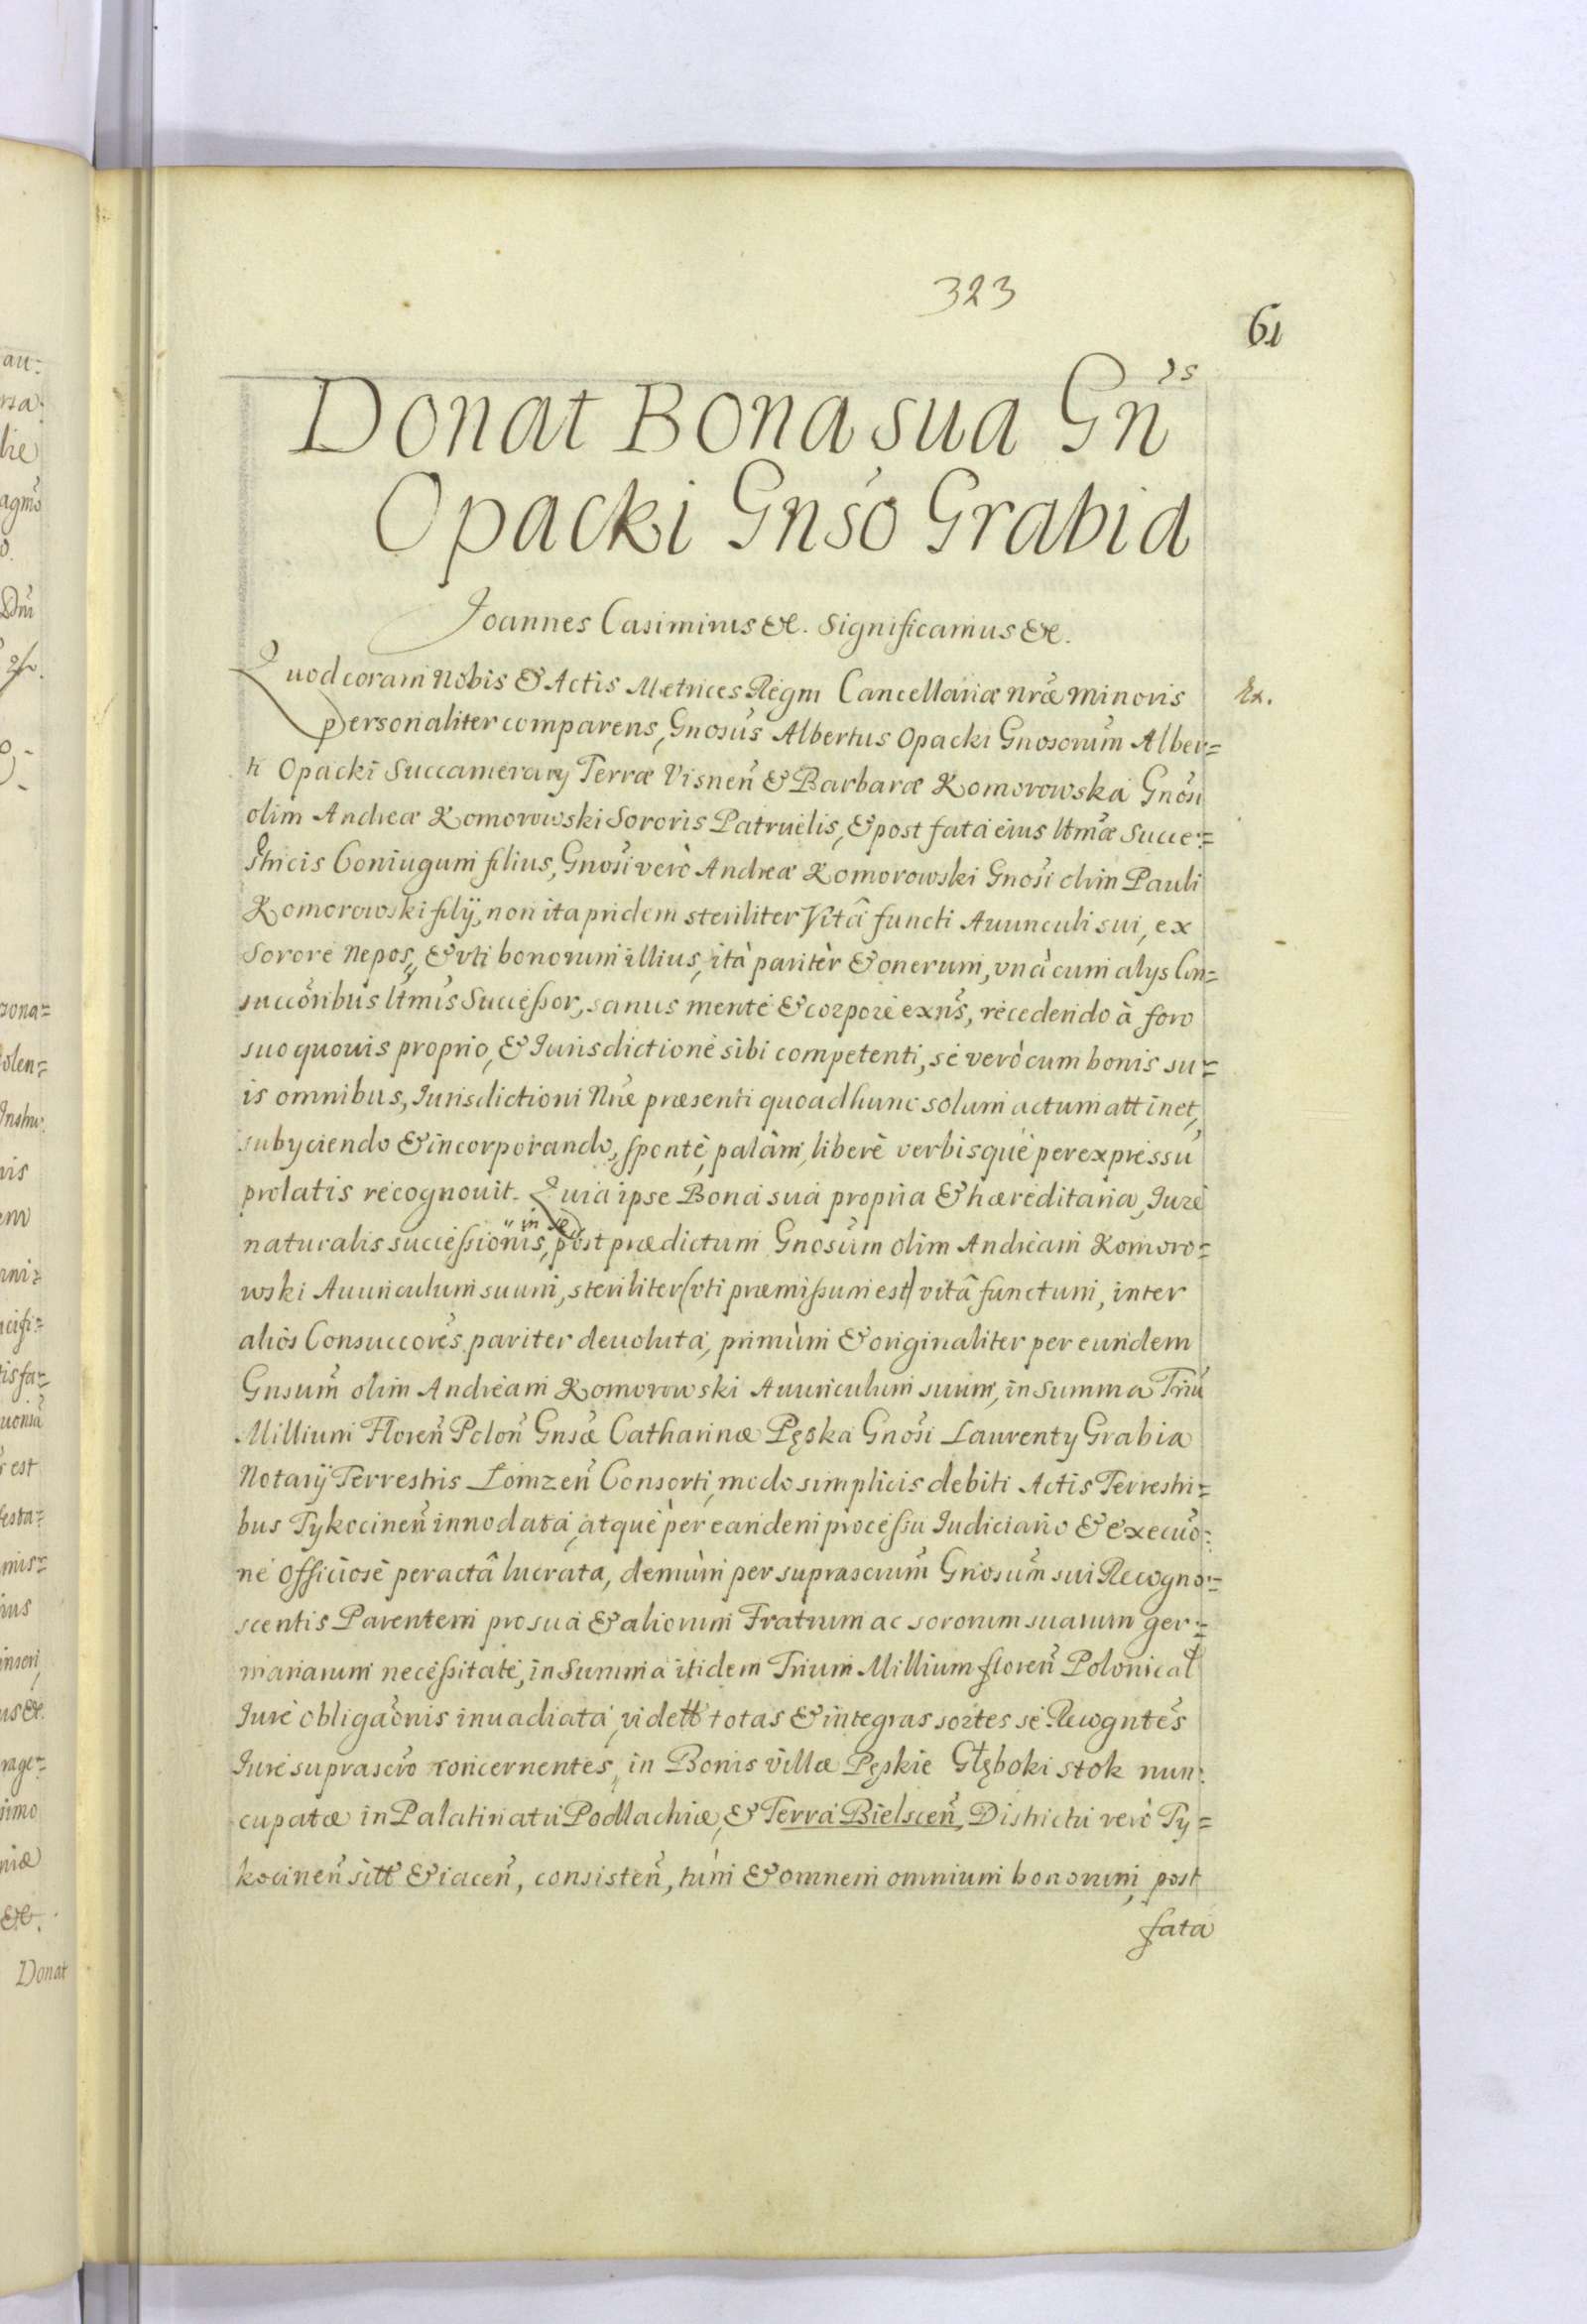 323
61
Donat Bona sua Gn̄s
Opacki Gnso Grabia
Joannes Casimirus &c. Significamus &c.
Quod coram Nobis & Actis Metrices Regni Cancellariæ nræ Minoris
Ex.
personaliter comparens, Gnosus Albertus Opacki Gnosorum Alber=
ti Opacki Succamerary Terræ Visnen̄ & Barbaræ Komorowska Gnosi
olim Andreæ Komorowski Sororis Patruelis, & post fata eius ltmæ Succe=
stricis Coniugum filius, Gnosi verò Andreæ Komorowski Gnosi olim Pauli
Komorowski filÿ, non ita pridem steriliter Vitâ functi Auunculi sui, ex
Sorore Nepos, & vti bonorum illius, ità paritèr & onerum, vnà cum alys Con=
succoribus ltmus Successor, sanus mente & corpore exns, recedendo à foro
suo quouis proprio, & Iurisdictione sibi competenti, se verò cum bonis su=
is omnibus, Iurisdictioni Nræ præsenti quoad hunc solum actum attinet,
subyciendo & incorporando, spontè, palàm, liberè verbisque per expressū
prolatis recognouit. Quia ipse Bona sua propria & hæreditaria, Iure
naturalis successionis, in se post prædictum Gnosum olim Andream Komoro=
wski Auunculum suum, steriliter (vti præmissum est) vitâ functum, inter
alios Consuccores pariter deuoluta, primùm & originaliter per eundem
Gnsum olim Andream Komorowski Auunculum suum, in Summa Triū
Millium Floren̄ Polon̄ Gnsæ Catharinæ Pęska Gnosi Laurenty Grabia
Notarÿ Terrestris Łomzen̄ Consorti, modo simplicis debiti Actis Terrestri=
bus Tykocinen̄ innodata, atque per eandem processu Iudiciario & execuo=
ne officiose peractâ lucrata, demùm per suprascrum Gnosum sui Recogno=
scentis Parentem pro sua & aliorum Fratrum ac sororum suarum ger=
manarum necessitate, in Summa itidem Trium Millium floren̄ Polonical
Iure obligaonis inuadiata, vidett totas & integras sortes se Recogntes
Iure suprascro concernentes, in Bonis villæ Pęskie Głęboki stok nun=
cupatæ in Palatinatu Podlachiæ, & Terra Bielscen̄, Districtu verò Ty=
kocinen̄ sitt & iacen̄, consisten̄, tùm & omnem omnium bonorum, post
fata